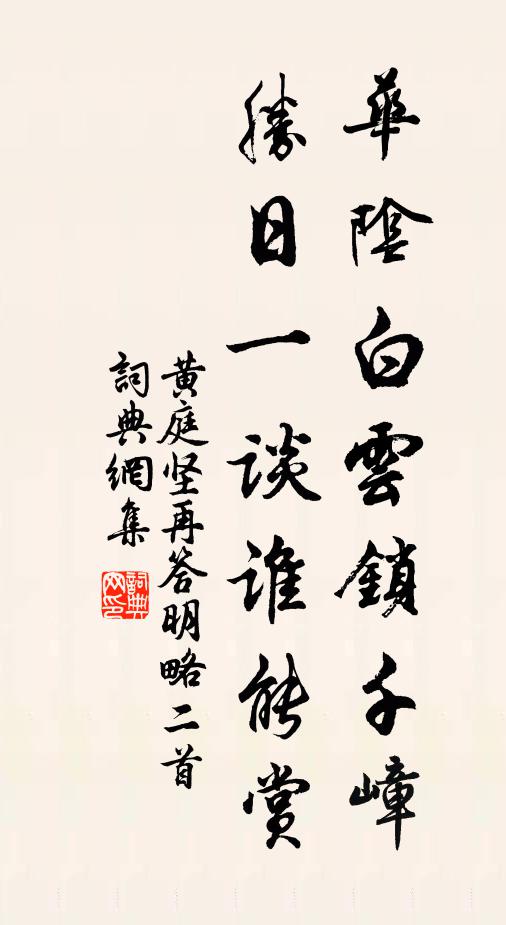 華陰白雲鎖千嶂
勝日一談誰能賞
黃庭坚再答明略二首
詞典網集
詞典
网印